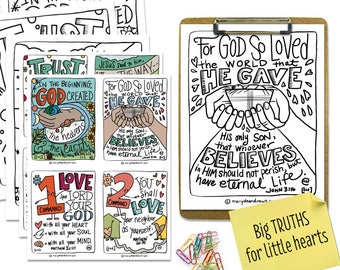 TRUST
JESUS
THE WAY
IN THE BEGINNING
GOD
CREATED
the heavens
& the EARTH
For GOD So LOVED
the WORLD that
HE GAVE
His only SON,
that whoever
BELIEVES
in HIM should not perish but
have eternal Life
1 LOVE
COMMAND
the LORD
YOUR
GOD
with all your HEART
with all your SOUL
with all your MIND.
2 You
Shall
COMMAND
LOVE
your neighbor
as yourself.
For GOD So LOVED
the WORLD that
HE GAVE
His only SON,
that whoever
BELIEVES
in HIM should not perish but
have eternal Life
JOHN 3:16
Big TRUTHS
for little hearts